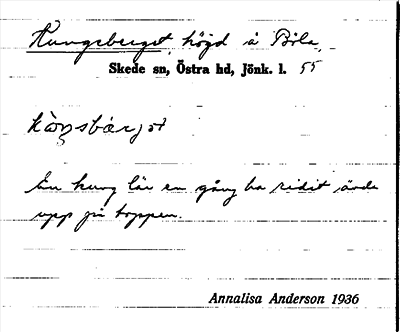 Kungsberget, höjd å Böla,
Skede sn, Östra hd, Jönk. l. 55
En kung lär en gång ha ridit ända
upp på toppen.
Annalisa Anderson 1936